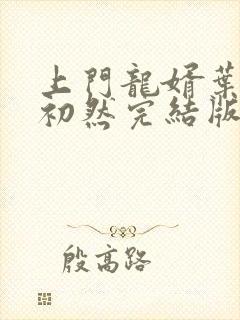 上門龍婿葉
初然完結版
殷高路